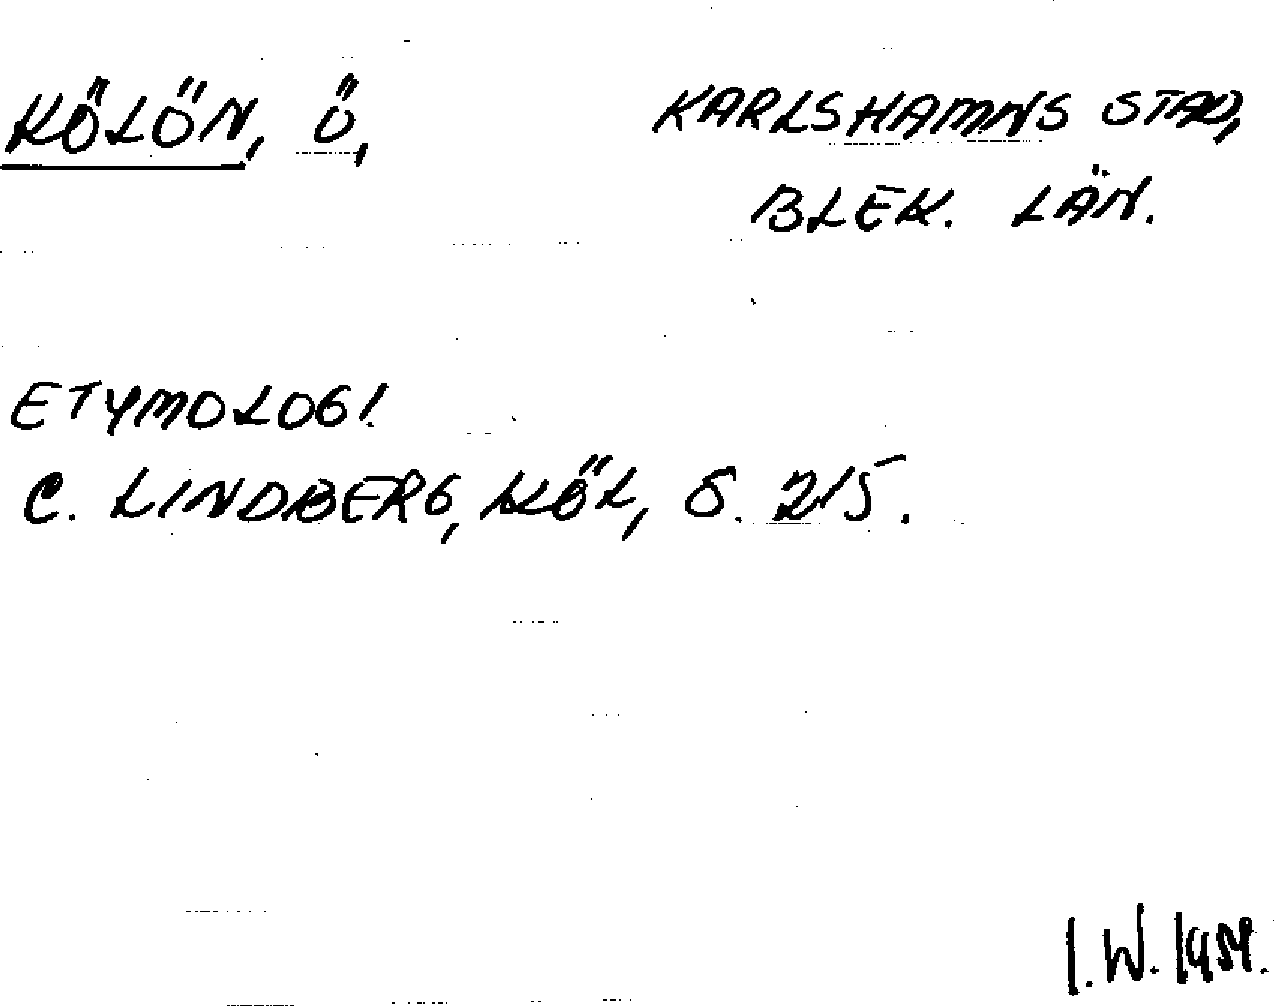 KÖLÖN, Ö, KARLSHAMNS STAD,
BLEK. LÄN.
ETYMOLOGI.
C. LINDBERG, KÖL, S. 215.
I. W. 1954.